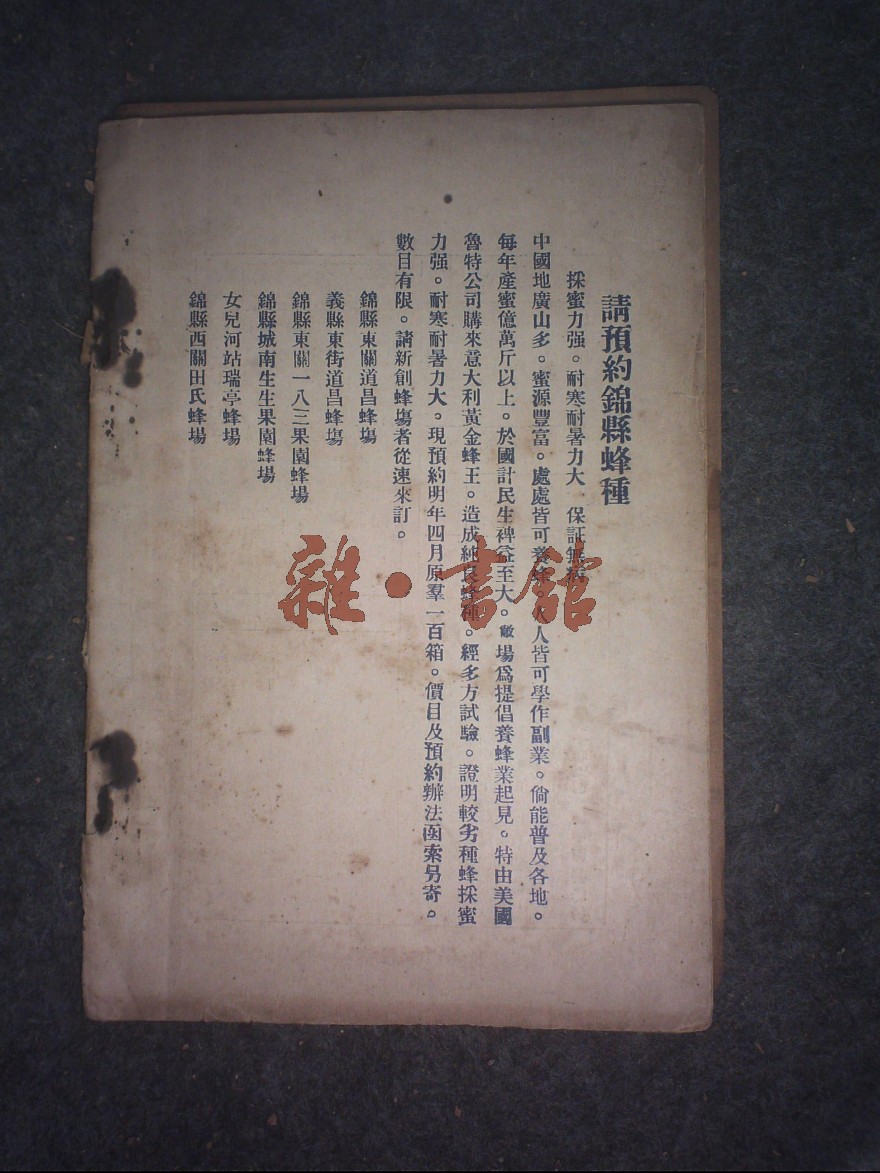 請預約錦縣蜂種
採蜜力强。耐寒耐暑力大 保証無病
中國地廣山多。蜜源豐富。處處皆可養蜂。人人皆可學作副業。倘能普及各地。
每年產蜜億萬斤以上。於國計民生裨益至大。敝場爲提倡養蜂業起見。特由美國
魯特公司購來意大利黃金蜂王。造成純良蜂種。經多方試驗。證明較劣種蜂採蜜
力强。耐寒耐暑力大。現預約明年四月原羣一百箱。價目及預約辦法函索另寄。
數目有限。請新創蜂塲者從速來訂。
錦縣東關道昌蜂塲
義縣東街道昌蜂塲
錦縣東關一八三果園蜂場
錦縣城南生生果園蜂場
女兒河站瑞亭蜂場
錦縣西關田氏蜂場
雜·書館